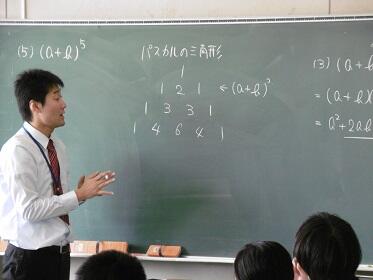 (5) (a+b)⁵
パスカルの三角形
1
1 2 1 ← (a+b)²
1 3 3 1
1 4 6 4 1
(3) (a+b
= (a+b)(
= a²+2ab